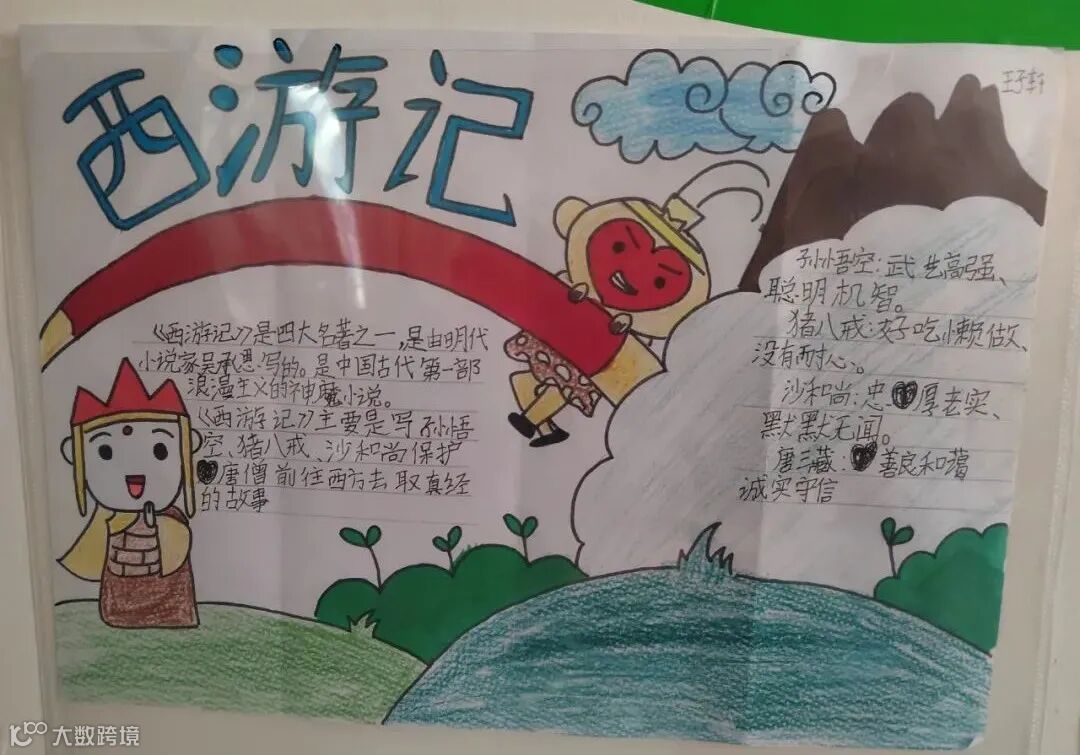 西游记
王子轩
《西游记》是四大名著之一,是由明代
小说家吴承恩写的。是中国古代第一部
浪漫主义的神魔小说。
《西游记》主要是写孙悟
空、猪八戒、沙和尚保护
唐僧前往西方去取真经
的故事
孙悟空:武艺高强、
聪明机智。
猪八戒:好吃懒做、
没有耐心。
沙和尚:忠厚老实、
默默无闻。
唐三藏:善良和谐
诚实守信
大数跨境